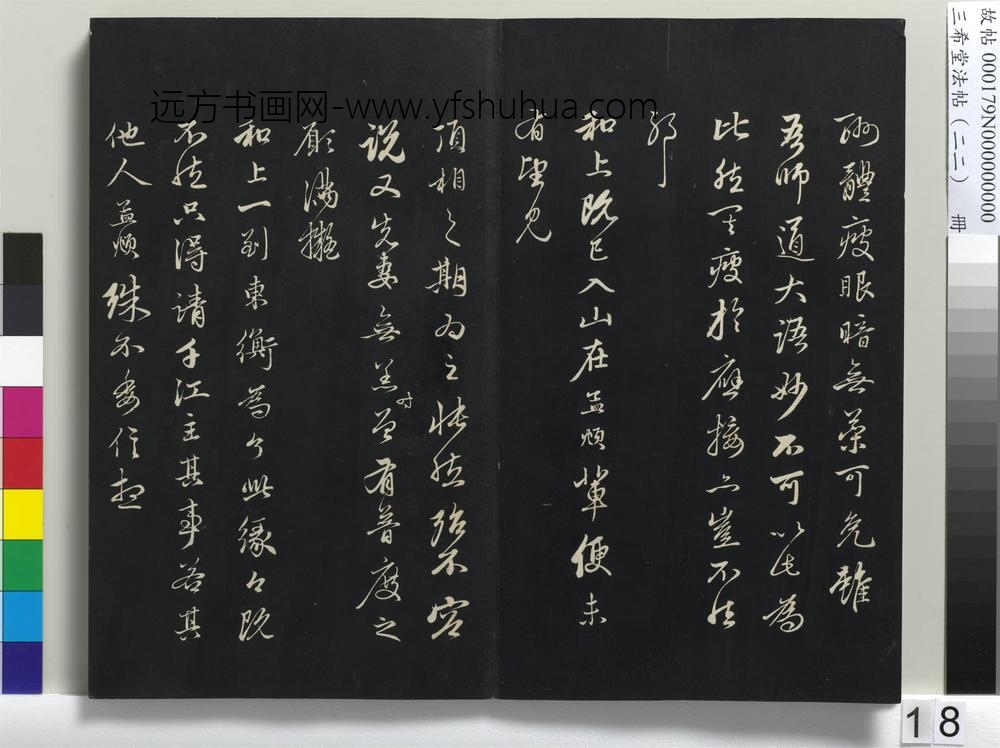 體瘦眼暗無藥可免雖
吾師道大語妙不可以此為
比然至瘦於應接亦豈不然
邪
和上既已入山在孟頫輩便未
有望見
頂相之期為之悵然殆不容
說又先妻無恙時曾有普度之
願滿擬
和上一到東衡為了此緣々既
不然只得請千江主其事若其
他人孟頫殊不委信想
远方书画网-www.yfshuhua.com
故帖 000179N000000000
三希堂法帖(二二) 冊
18